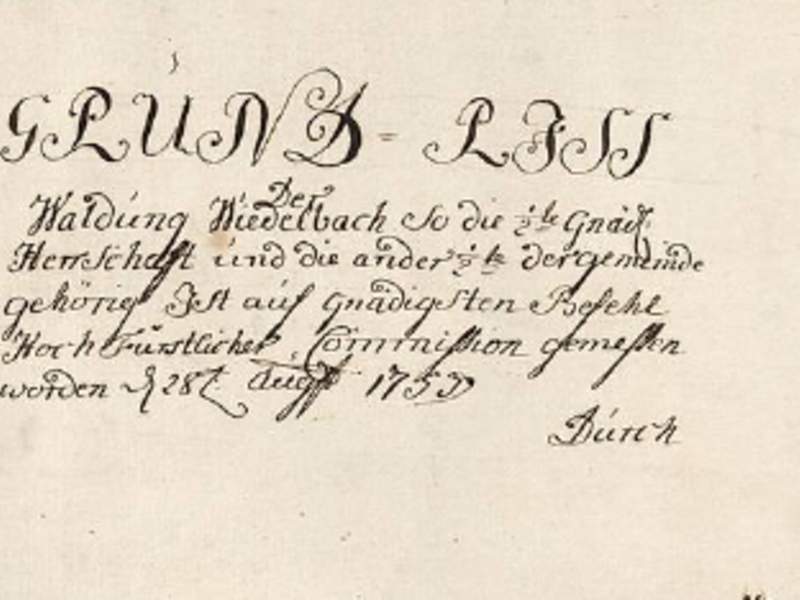 GRUND-RISS
Der
Waldung Wiedelbach So die ½te Gnäd.
Herrschafft und die ander ½te der gemeinde
gehörig Ist auf gnädigsten Befehl
Hoch Fürstlicher Commission gemessen
worden d 28t Augst
Durch